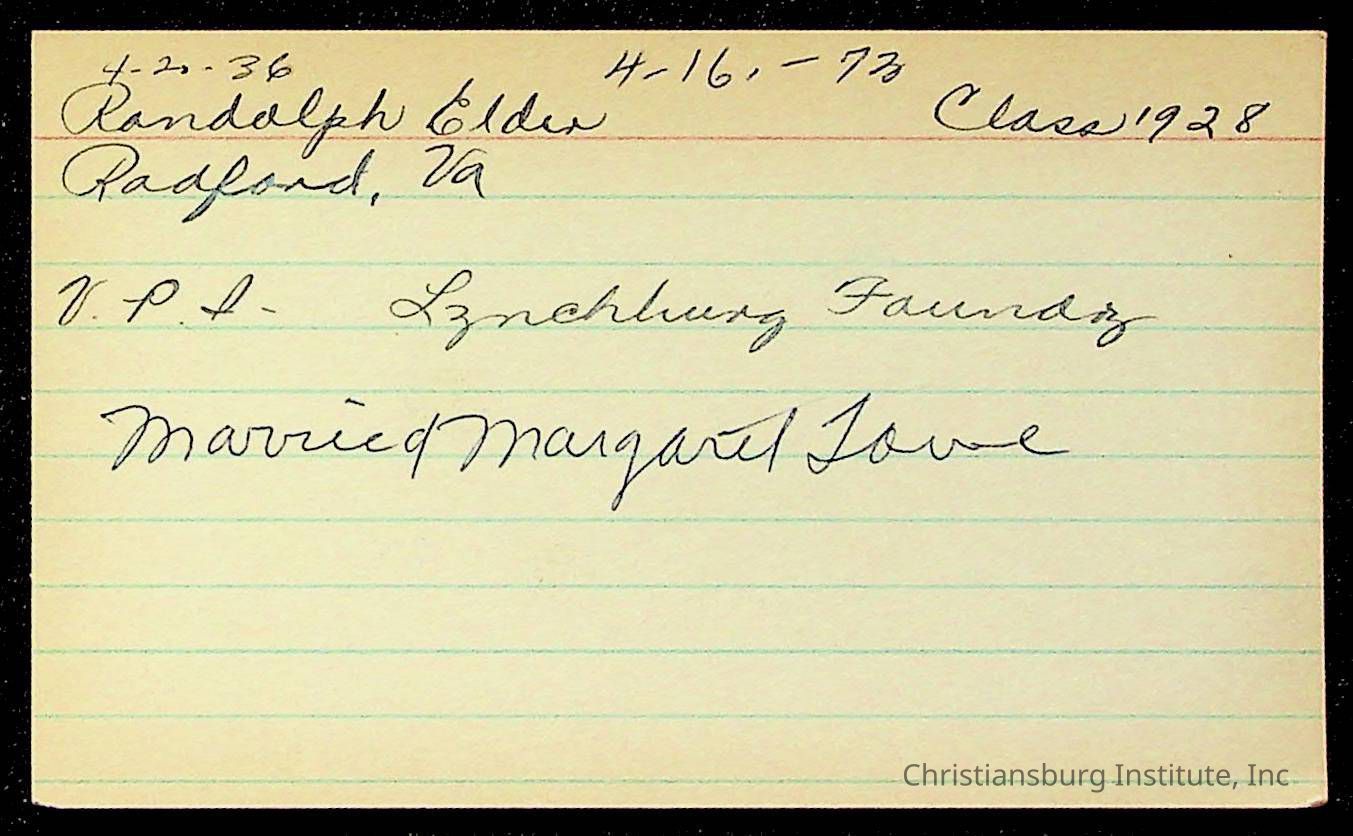 4-2-36 4-16.-73
Randolph Elder Class 1928
Radford, Va
V. P. I- Lynchburg Foundry
Married Margaret Lowe
Christiansburg Institute, Inc